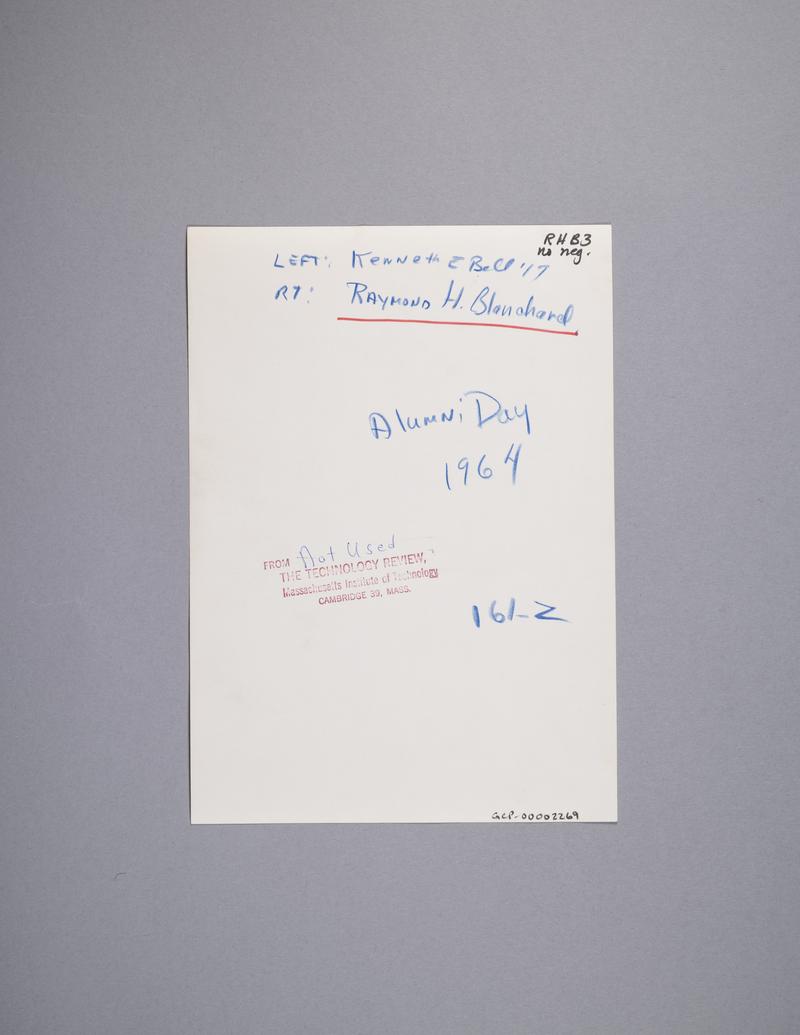 RHB3
no neg.
LEFT: Kenneth E Bell '17
RT: RAYMOND H. Blanchard
Alumni Day
1964
Not Used
FROM
THE TECHNOLOGY REVIEW,
Massachusetts Institute of Technology
CAMBRIDGE 39, MASS.
161-2
GCP-00002269